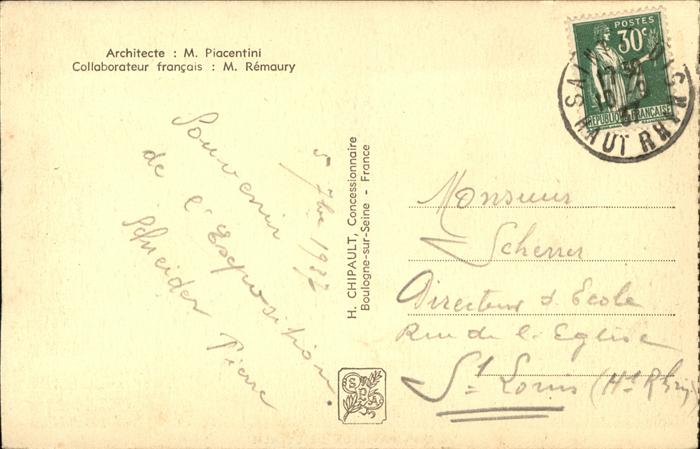 Architecte : M. Piacentini
Collaborateur français : M. Rémaury
5 7bre 1937
Souvenir
de l'Exposition.
Schneider Pierre
H. CHIPAULT, Concessionnaire
Boulogne-sur-Seine - France
SPA
POSTES
30c
REPUBLIQUE FRANÇAISE
HAUT RHIN
Monsieur
Scherrer
Directeur d'Ecole
Rue de l'Eglise
St Louis (Ht Rhin)